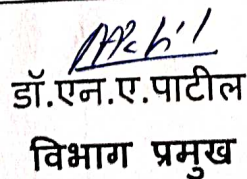 डॉ.एन.ए.पाटील
विभाग प्रमुख